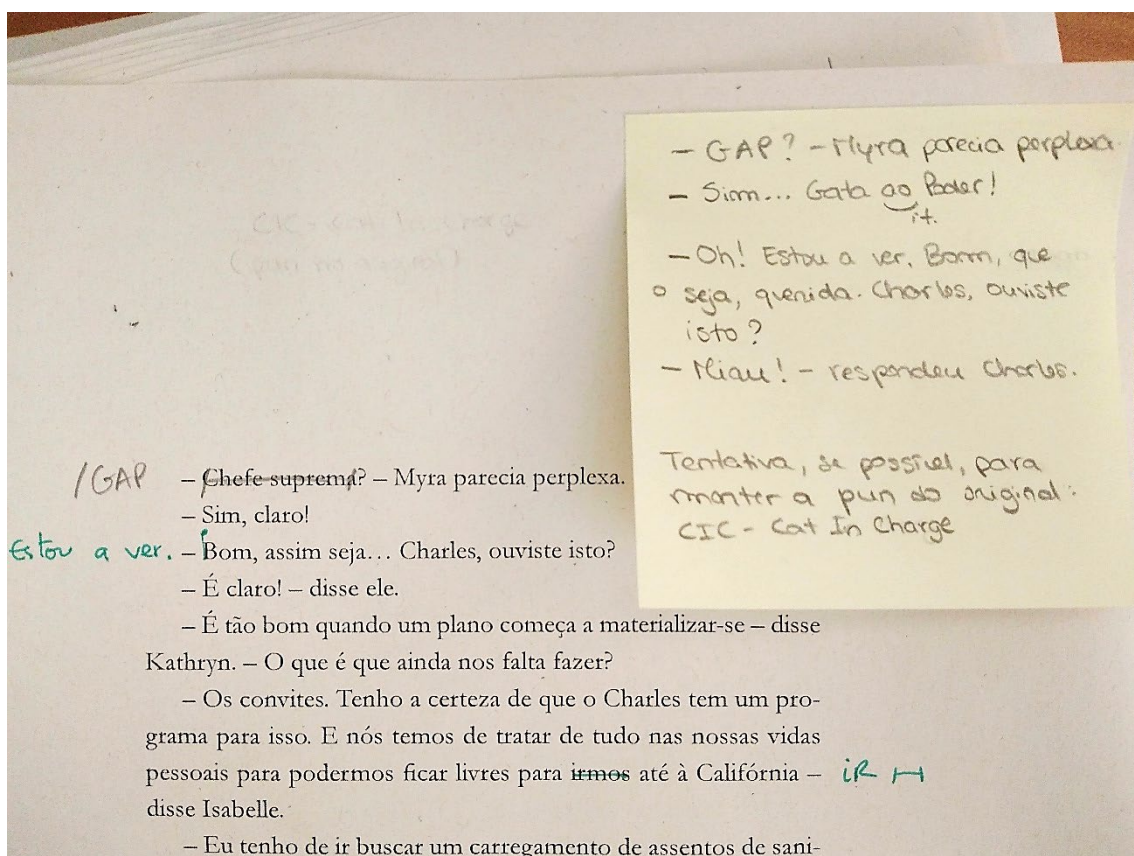 – GAP? – Myra parecia perplexa.
– Sim... Gata ao Poder!
it.
– Oh! Estou a ver. Bom, que
seja, querida. Charles, ouviste
isto?
– Miau! – respondeu Charles.
Tentativa, se possível, para
manter a pun do original:
CIC - Cat In Charge
CIC - Cat In Charge
(pun no original)
/GAP – Chefe suprema? – Myra parecia perplexa.
– Sim, claro!
Estou a ver. – Bom, assim seja… Charles, ouviste isto?
– É claro! – disse ele.
– É tão bom quando um plano começa a materializar-se – disse
Kathryn. – O que é que ainda nos falta fazer?
– Os convites. Tenho a certeza de que o Charles tem um pro-
grama para isso. E nós temos de tratar de tudo nas nossas vidas
pessoais para podermos ficar livres para irmos até à Califórnia – iR H
disse Isabelle.
– Eu tenho de ir buscar um carregamento de assentos de sani-